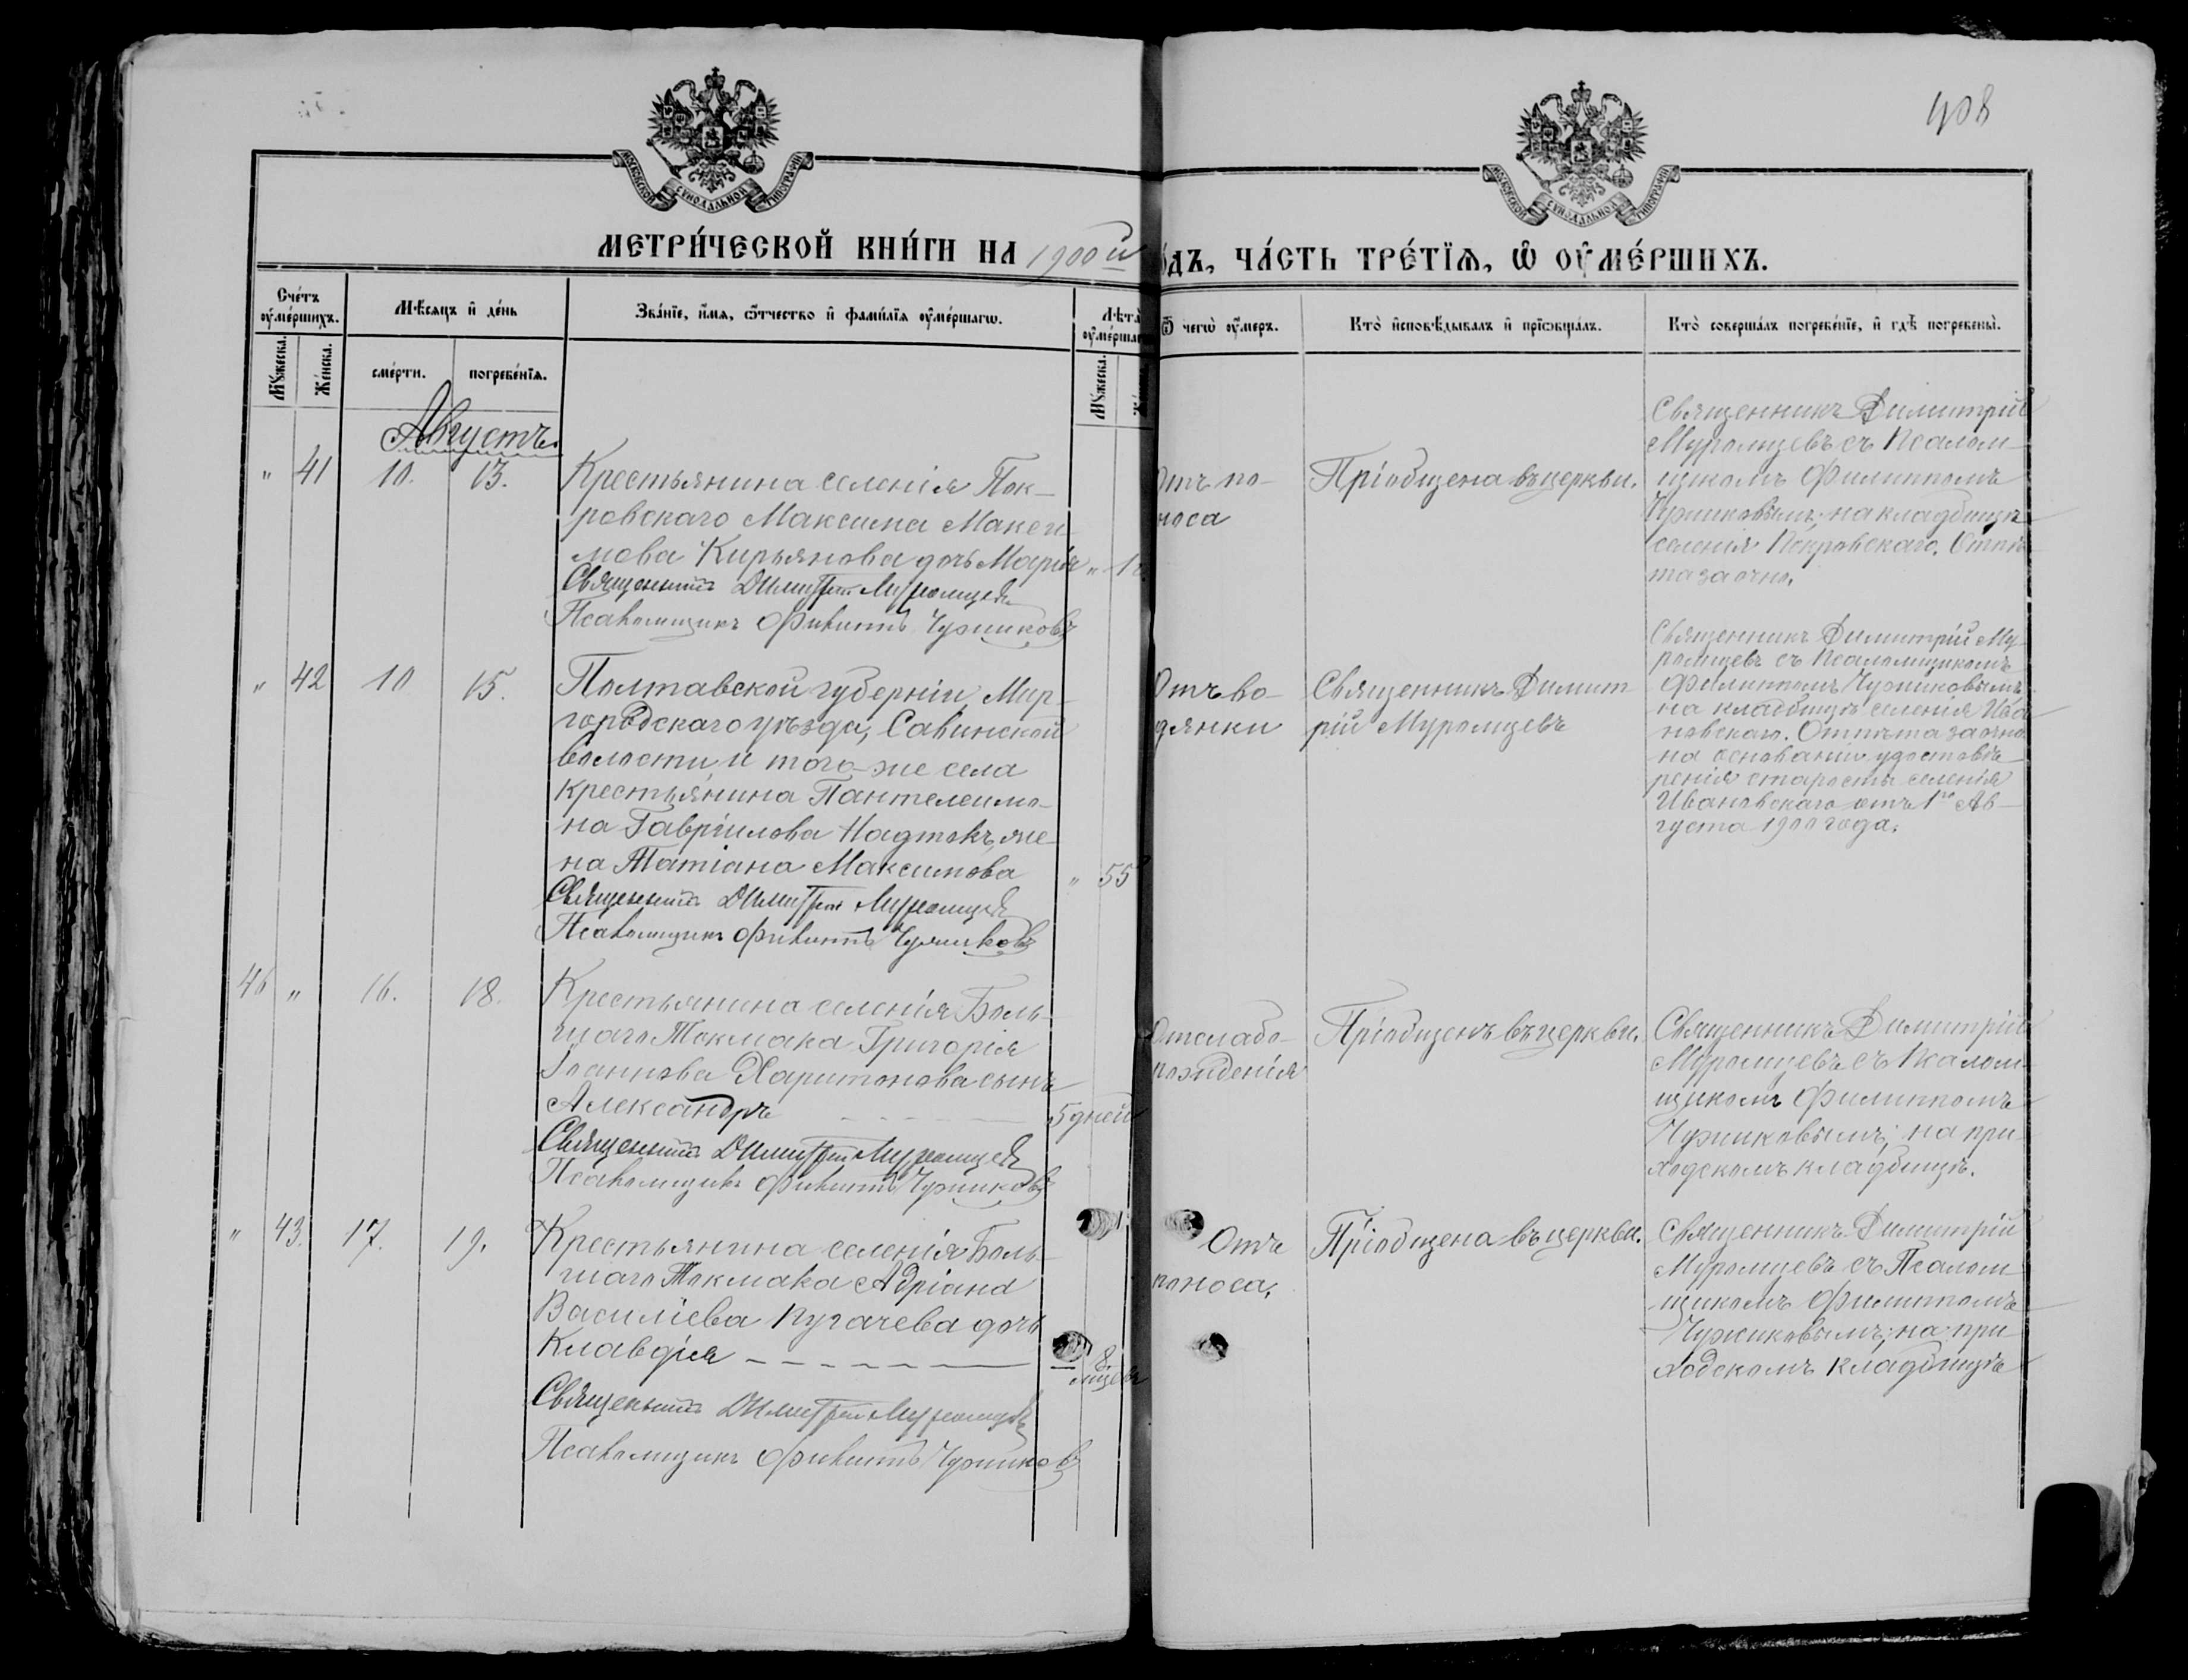 408
МОСКОВСКОЙ СУНОДАЛЬНОЙ ТИПОГРАФІИ
МОСКОВСКОЙ СУНОДАЛЬНОЙ ТИПОГРАФІИ
МЕТРИ́ЧЕСКОЙ КНИ́ГИ НА 1900й
о́дъ, ЧА́СТЬ ТРЕ́ТЇѦ, Ѡ҆ ОУ҆МЕ́РШИХЪ.
Сче́тъ оу҆ме́ршихъ.
Мѣ́сяцъ и҆ де́нь
Зва́нїе, и҆́мя, ѻ҆́тчество и҆ фами́лїя оу҆ме́ршагѡ.
Лѣта̀
оу҆ме́ршаг
Ѿ чегѡ̀ оу҆́меръ.
Кто̀ и҆сповѣ́дывалъ и҆ прїѡбща́лъ.
Кто̀ соверша́лъ погребе́нїе, и҆ гдѣ̀ погребены̀.
Мꙋ́жеска.
Же́нска.
сме́рти.
погребе́нїя.
Мꙋ́жеска.
Августъ.
" 41 10. 13.
Крестьянина селенія Пок-
ровскаго Максима Макси-
мова Кирьянова дочь Марія "
Священникъ Димитрій Муромцевъ
Псаломщикъ Филиппъ Чурилковъ
Отъ по-
носа
Пріобщена въ церкви.
Священникъ Димитрій
Муромцевъ съ Псалом-
щикомъ Филиппомъ
на кладбищѣ
селенія Покровскаго. Отпѣ-
та заочно.
" 42 10 15.
Полтавской губерніи, Мир-
городскаго уѣзда, Савинской
волости, и того-же села
крестьянина Пантелеимо-
на Гавріилова Надтокъ, же-
на Татіана Максимова " 55
Священникъ Димитрій Муромцевъ
Псаломщикъ Филиппъ Чурилковъ
Отъ во-
дянки
Священникъ Димит-
рій Муромцевъ
Священникъ Димитрій Му-
ромцевъ съ Псаломщикомъ
Филиппомъ Чурилковымъ
на кладбищѣ селенія Ива-
новскаго. Отпѣта заочно
на основаніи удостовѣ-
ренія старосты селенія
Ивановскаго отъ 1го Ав-
густа 1900 года.
46 " 16. 18.
Крестьянина селенія Боль-
шаго Токмака Григорія
Іоаннова Харитонова сынъ
Александръ 5 дней
Священникъ Димитрій Муромцевъ
Псаломщикъ Филиппъ Чурилковъ
Отъ слабо-
рожденія
Пріобщенъ въ церкви.
Священникъ Димитрій
Муромцевъ съ Псалом-
щикомъ Филиппомъ
Чурилковымъ; на при-
ходскомъ кладбищѣ.
" 43. 17. 19.
Крестьянина селенія Боль-
шаго Токмака Адріана
Василіева Пугачева дочь
Клавдія 8 мцевъ
Священникъ Димитрій Муромцевъ
Псаломщикъ Филиппъ Чурилковъ
Отъ
поноса.
Пріобщена въ церкви.
Священникъ Димитрій
Муромцевъ съ Псалом-
щикомъ Филиппомъ
Чурилковымъ; на при-
ходскомъ кладбищѣ